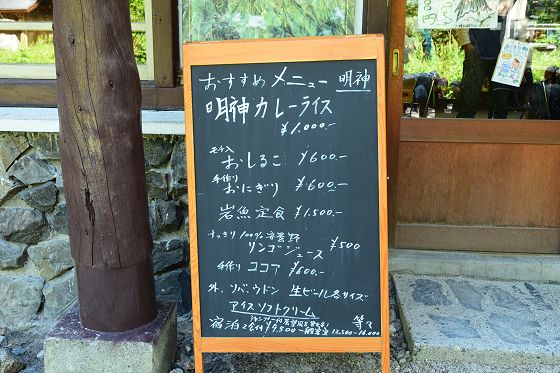 おすすめメニュー 明神
明神カレーライス
¥1,000.-
モチ入
おしるこ ¥600.-
手作り
おにぎり ¥600.-
岩魚定食 ¥1,500.-
すっきり 100% 安曇野
リンゴジュース ¥500
手作り ココア ¥600.-
外、ソバ、ウドン 生ビール各サイズ
アイスソフトクリーム 等々
宿泊 2食付 ¥9,500